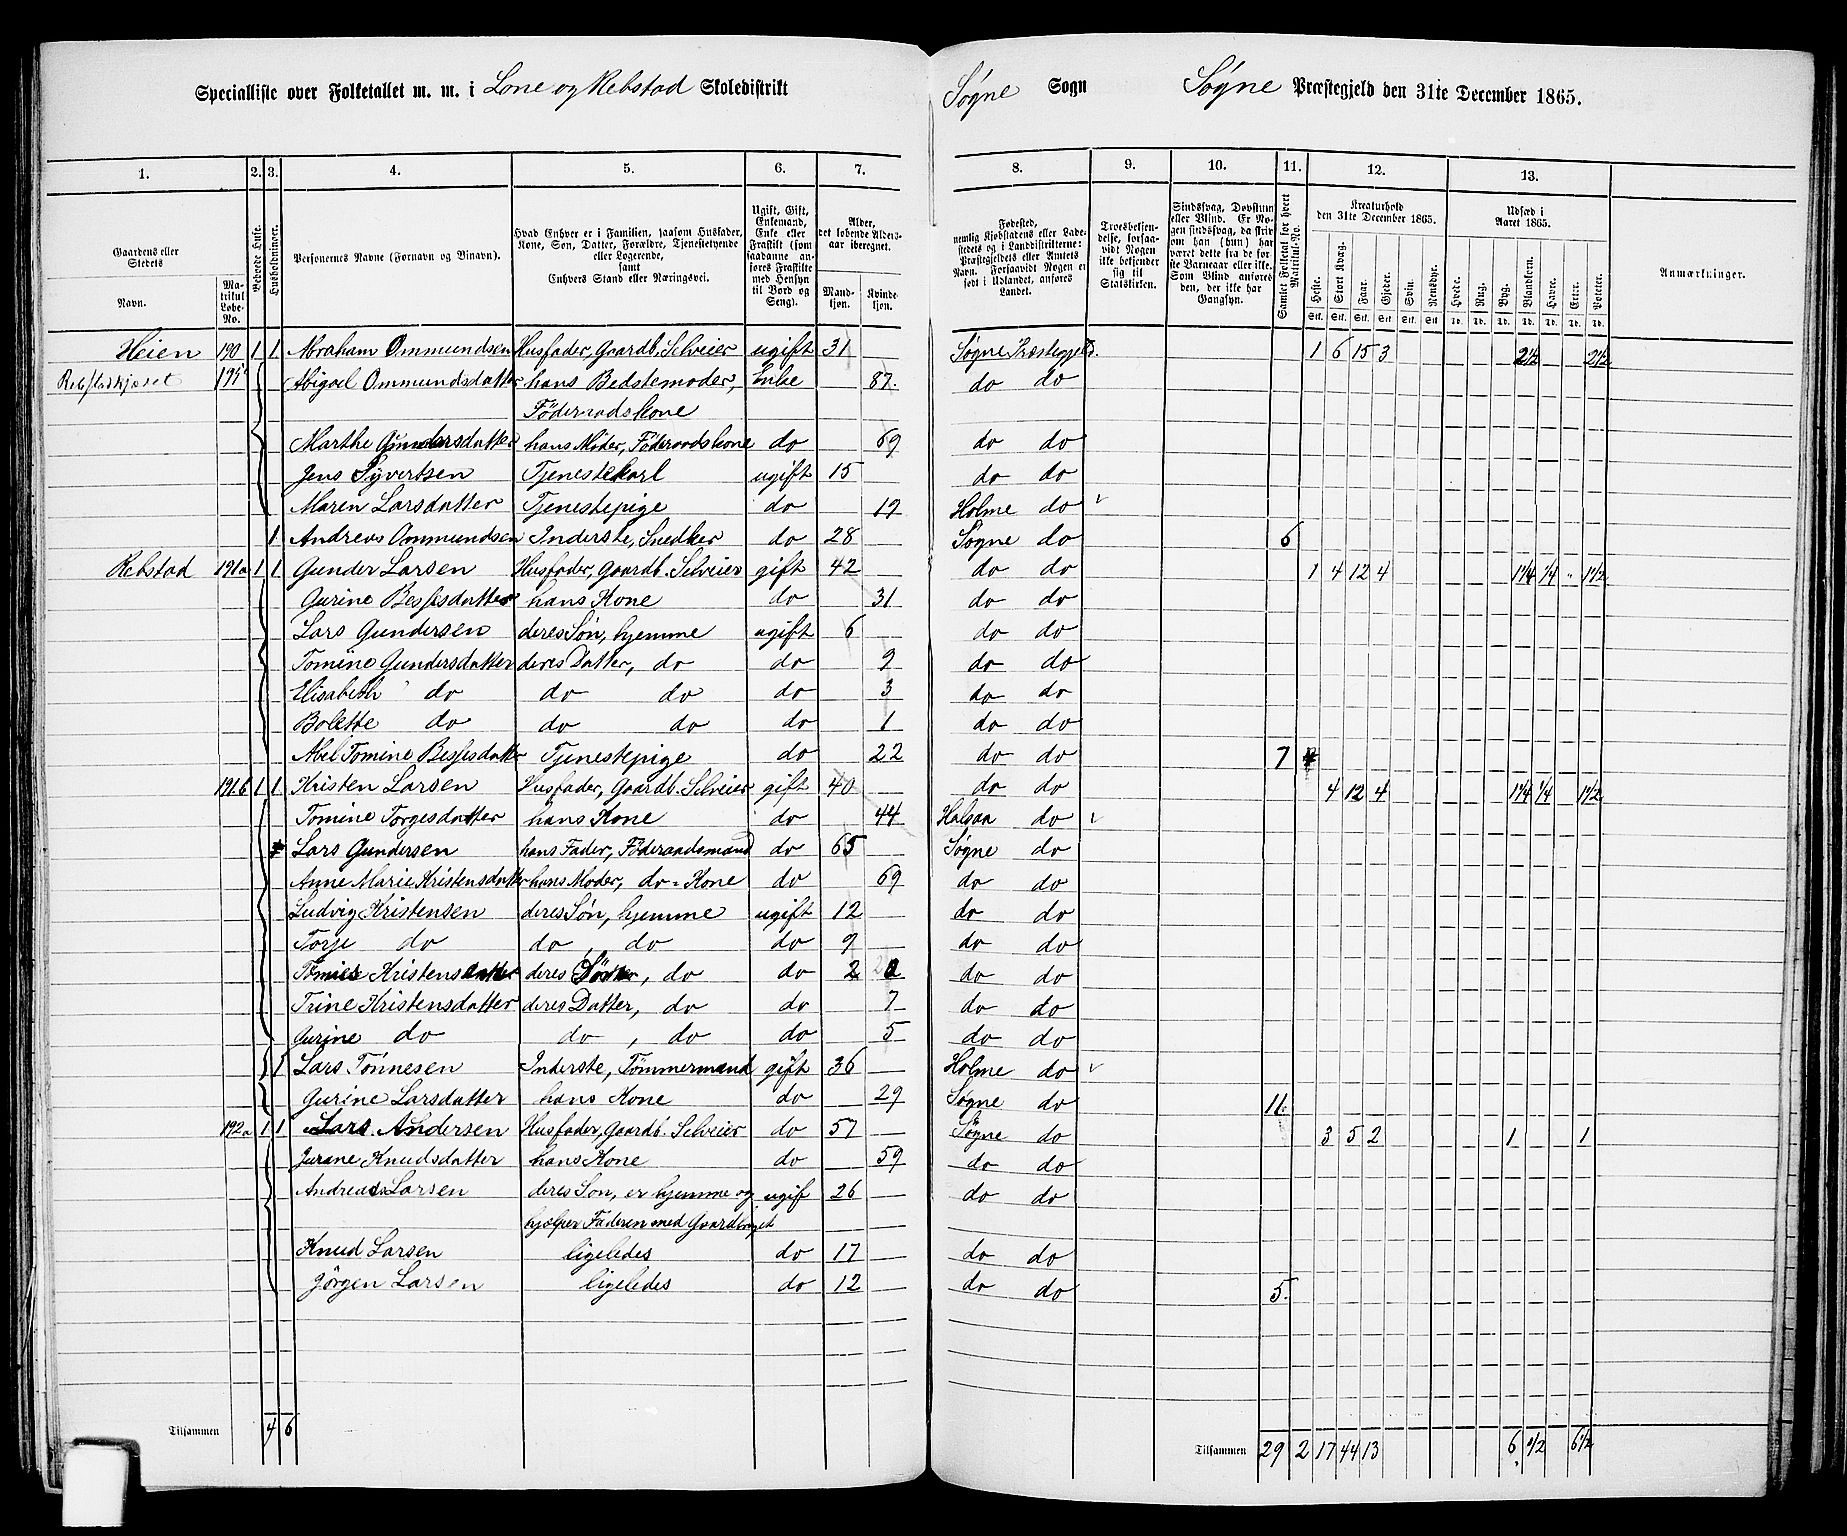 Specialliste over Folketallet m. m. i Lone og Rebstad Skoledistrikt
Søgne Sogn Søgne Præstegjeld den 31te December 1865.
1. 2. 3. 4. 5. 6. 7. 8. 9. 10. 11. 12. 13.
Gaardens eller Stedets Navn. Matrikul Løbe-No.
Beboede Huse. Husholdninger.
Personernes Navne (Fornavn og Binavn).
Hvad Enhver er i Familien, saasom Husfader, Kone, Søn, Datter, Forældre, Tjenestetyende eller Logerende, samt Enhvers Stand eller Næringsvei.
Ugift, Gift, Enkemand, Enke eller Fraskilt (som saadanne anføres Fraskilte med Hensyn til Bord og Seng).
Alder, det løbende Alders-aar iberegnet. Mandkjøn. Kvindekjøn.
Fødested, nemlig Kjøbstadens eller Ladestedets og i Landdistrikterne: Præstegjeldets eller Amtets Navn. Forsaavidt Nogen er født i Udlandet, anføres Landet.
Troesbekjendelse, forsaavidt Nogen ikke bekjender sig til Statskirken.
Sindssvag, Døvstum eller Blind. Er Nogen sindssvag, da skrives om han (hun) har været dette fra de første Barneaar eller ikke. Som Blind anføres den, der ikke har Gangsyn.
Samlet Folketal for hvert Matrikul-No.
Kreaturhold den 31te December 1865.
Udsæd i Aaret 1865.
Anmærkninger.
Heste. Stort Kvæg. Faar. Gjeder. Svin. Rensdyr. Hvede. Rug. Byg. Blandkorn. Havre. Erter. Poteter.
Heien 190 1 1 Abraham Ommundsen Husfader, Gaardb. Selveier ugift 31 Søgne Præstegjeld. 1 6 15 3 2½ 2½
195 Abigael Ommundsdatter hans Bedstemoder, Enke 87. do do
Föderaadskone
Marthe Gundersdatter hans Moder, Föderaadskone do 69 do do
Jens Syvertsen Tjenestekarl ugift 15 do do
Maren Larsdatter Tjenestepige do 19 Holme do
1 Andreas Ommundsen Inderste, Snedker do 28 Søgne do 6
Rebstad 191a 1 1 Gunder Larsen Husfader, Gaardb. Selveier gift 42 do do 1 4 12 4 1¼ ¼ 1½
Gurine Bessesdatter hans Kone do 31 do do
Lars Gundersen deres Søn, hjemme ugift 6 do do
Tomine Gundersdatter deres Datter, do do 9 do do
Elisabeth do do do do 3 do do
Bolette do do do do 1 do do
Abel Tomine Bessesdatter Tjenestepige do 22 do do 7
191b 1 1 Kristen Larsen Husfader, Gaardb. Selveier gift 40 do do 4 12 4 1¼ ¼ 1½
Tomine Torgesdatter hans Kone do 44 Halsaa do
Lars Gundersen hans Fader, Föderaadsmand do 65 Søgne do
Anne Marie Kristensdatter hans Moder, do - Kone do 69 do do
Ludvig Kristensen deres Søn, hjemme ugift 12 do do
Torje do do, do do 9 do do
Kristensdatter deres, do do 2 do do
Trine Kristensdatter deres Datter, do do 7 do do
Gurine do do, do do 5 do do
1 Lars Tønnesen Inderste, Tømmermand gift 36 Holme do
Gurine Larsdatter hans Kone do 29 Søgne do 11.
192a 1 1 Lars Andersen Husfader, Gaardb. Selveier do 57 Søgne do 3 5 2 1 1
Jurane Knudsdatter hans Kone do 59 do do
Andreas Larsen deres Søn, er hjemme og ugif 26 do do
hjelper Faderen med Gaardbruget
Knud Larsen ligeledes do 17 do do
Jörgen Larsen ligeledes do 12 do do 5.
Tilsammen 4 6 Tilsammen 29 2 17 44 13 6 ½ 6½